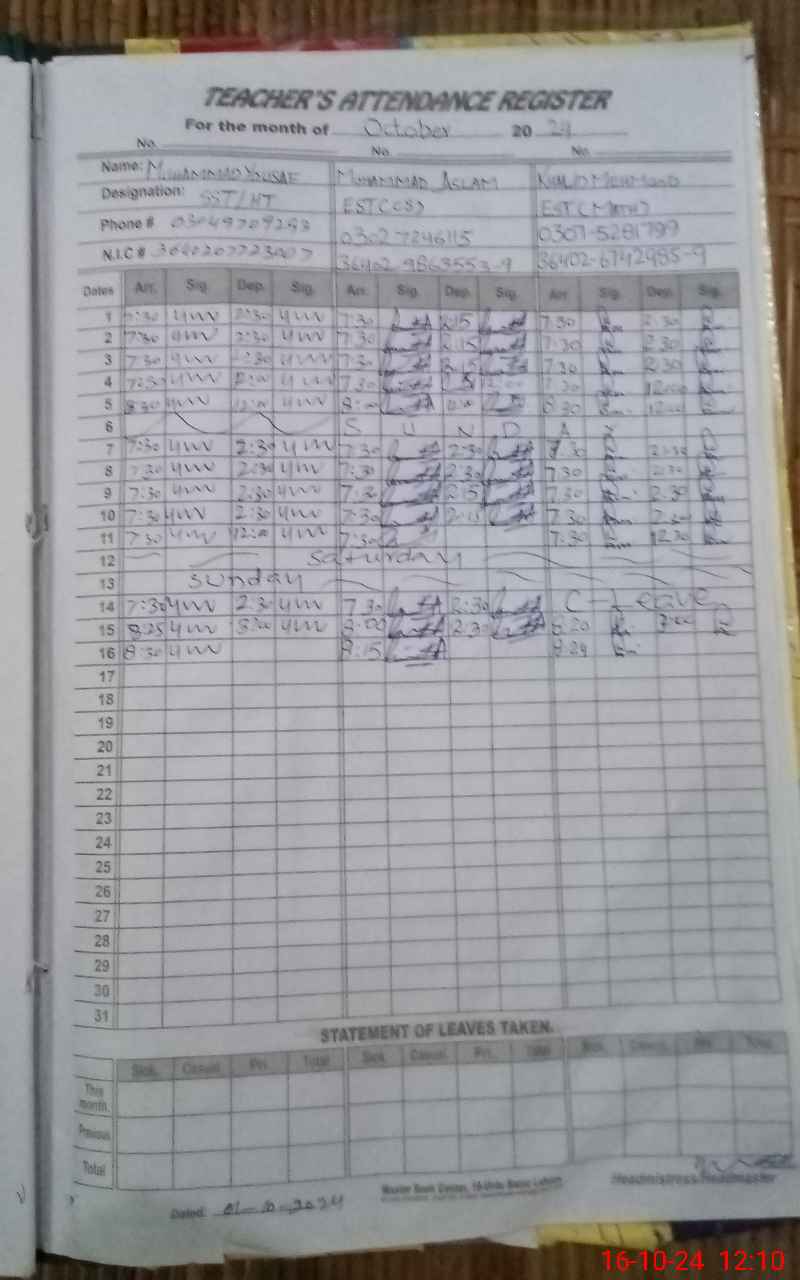 TEACHER'S ATTENDANCE REGISTER
For the month of October 2024
No. No. No.
Name: MUHAMMAD YOUSAF MUHAMMAD ASLAM KHALID MEHMOOD
Designation: SST/HT EST(CS) EST(MATH)
Phone # 0302-7246115 0307-5281799
N.I.C # 36402-9863553-9 36402-6742985-9
Dates Arr. Sig. Dep. Sig. Arr. Sig. Dep. Sig. Arr. Sig. Dep. Sig.
1 7:30 2:30 7:30 2:15 7:30 2:30
2 7:30 2:30 7:30 2:15 7:30 2:30
3 7:30 2:30 7:30 2:15 7:30 2:30
4 7:30 12:00 7:30 12:00 7:30 12:00
5 8:30 12:00 8:00 8:30 12:00
6 S U N D A Y
7 7:30 2:30 7:30 2:30 7:30 2:30
8 7:30 2:30 7:30 2:30 7:30 2:30
9 7:30 2:30 7:30 2:15 7:30 2:30
10 7:30 2:30 7:30 2:15 7:30 2:30
11 7:30 12:00 7:30 7:30 12:30
12 Saturday
13 Sunday
14 7:30 2:30 7:30 2:30 C-Leave
15 8:25 3:00 8:00 2:30 8:20 3:00
16 8:30 8:15 8:29
17
18
19
20
21
22
23
24
25
26
27
28
29
30
31
STATEMENT OF LEAVES TAKEN.
Sick. Casual. Pri. Total Sick. Casual. Pri. Total Sick. Casual. Pri. Total
This month.
Previous
Total
Headmistress/Headmaster
Dated: 01-10-2024
16-10-24 12:10